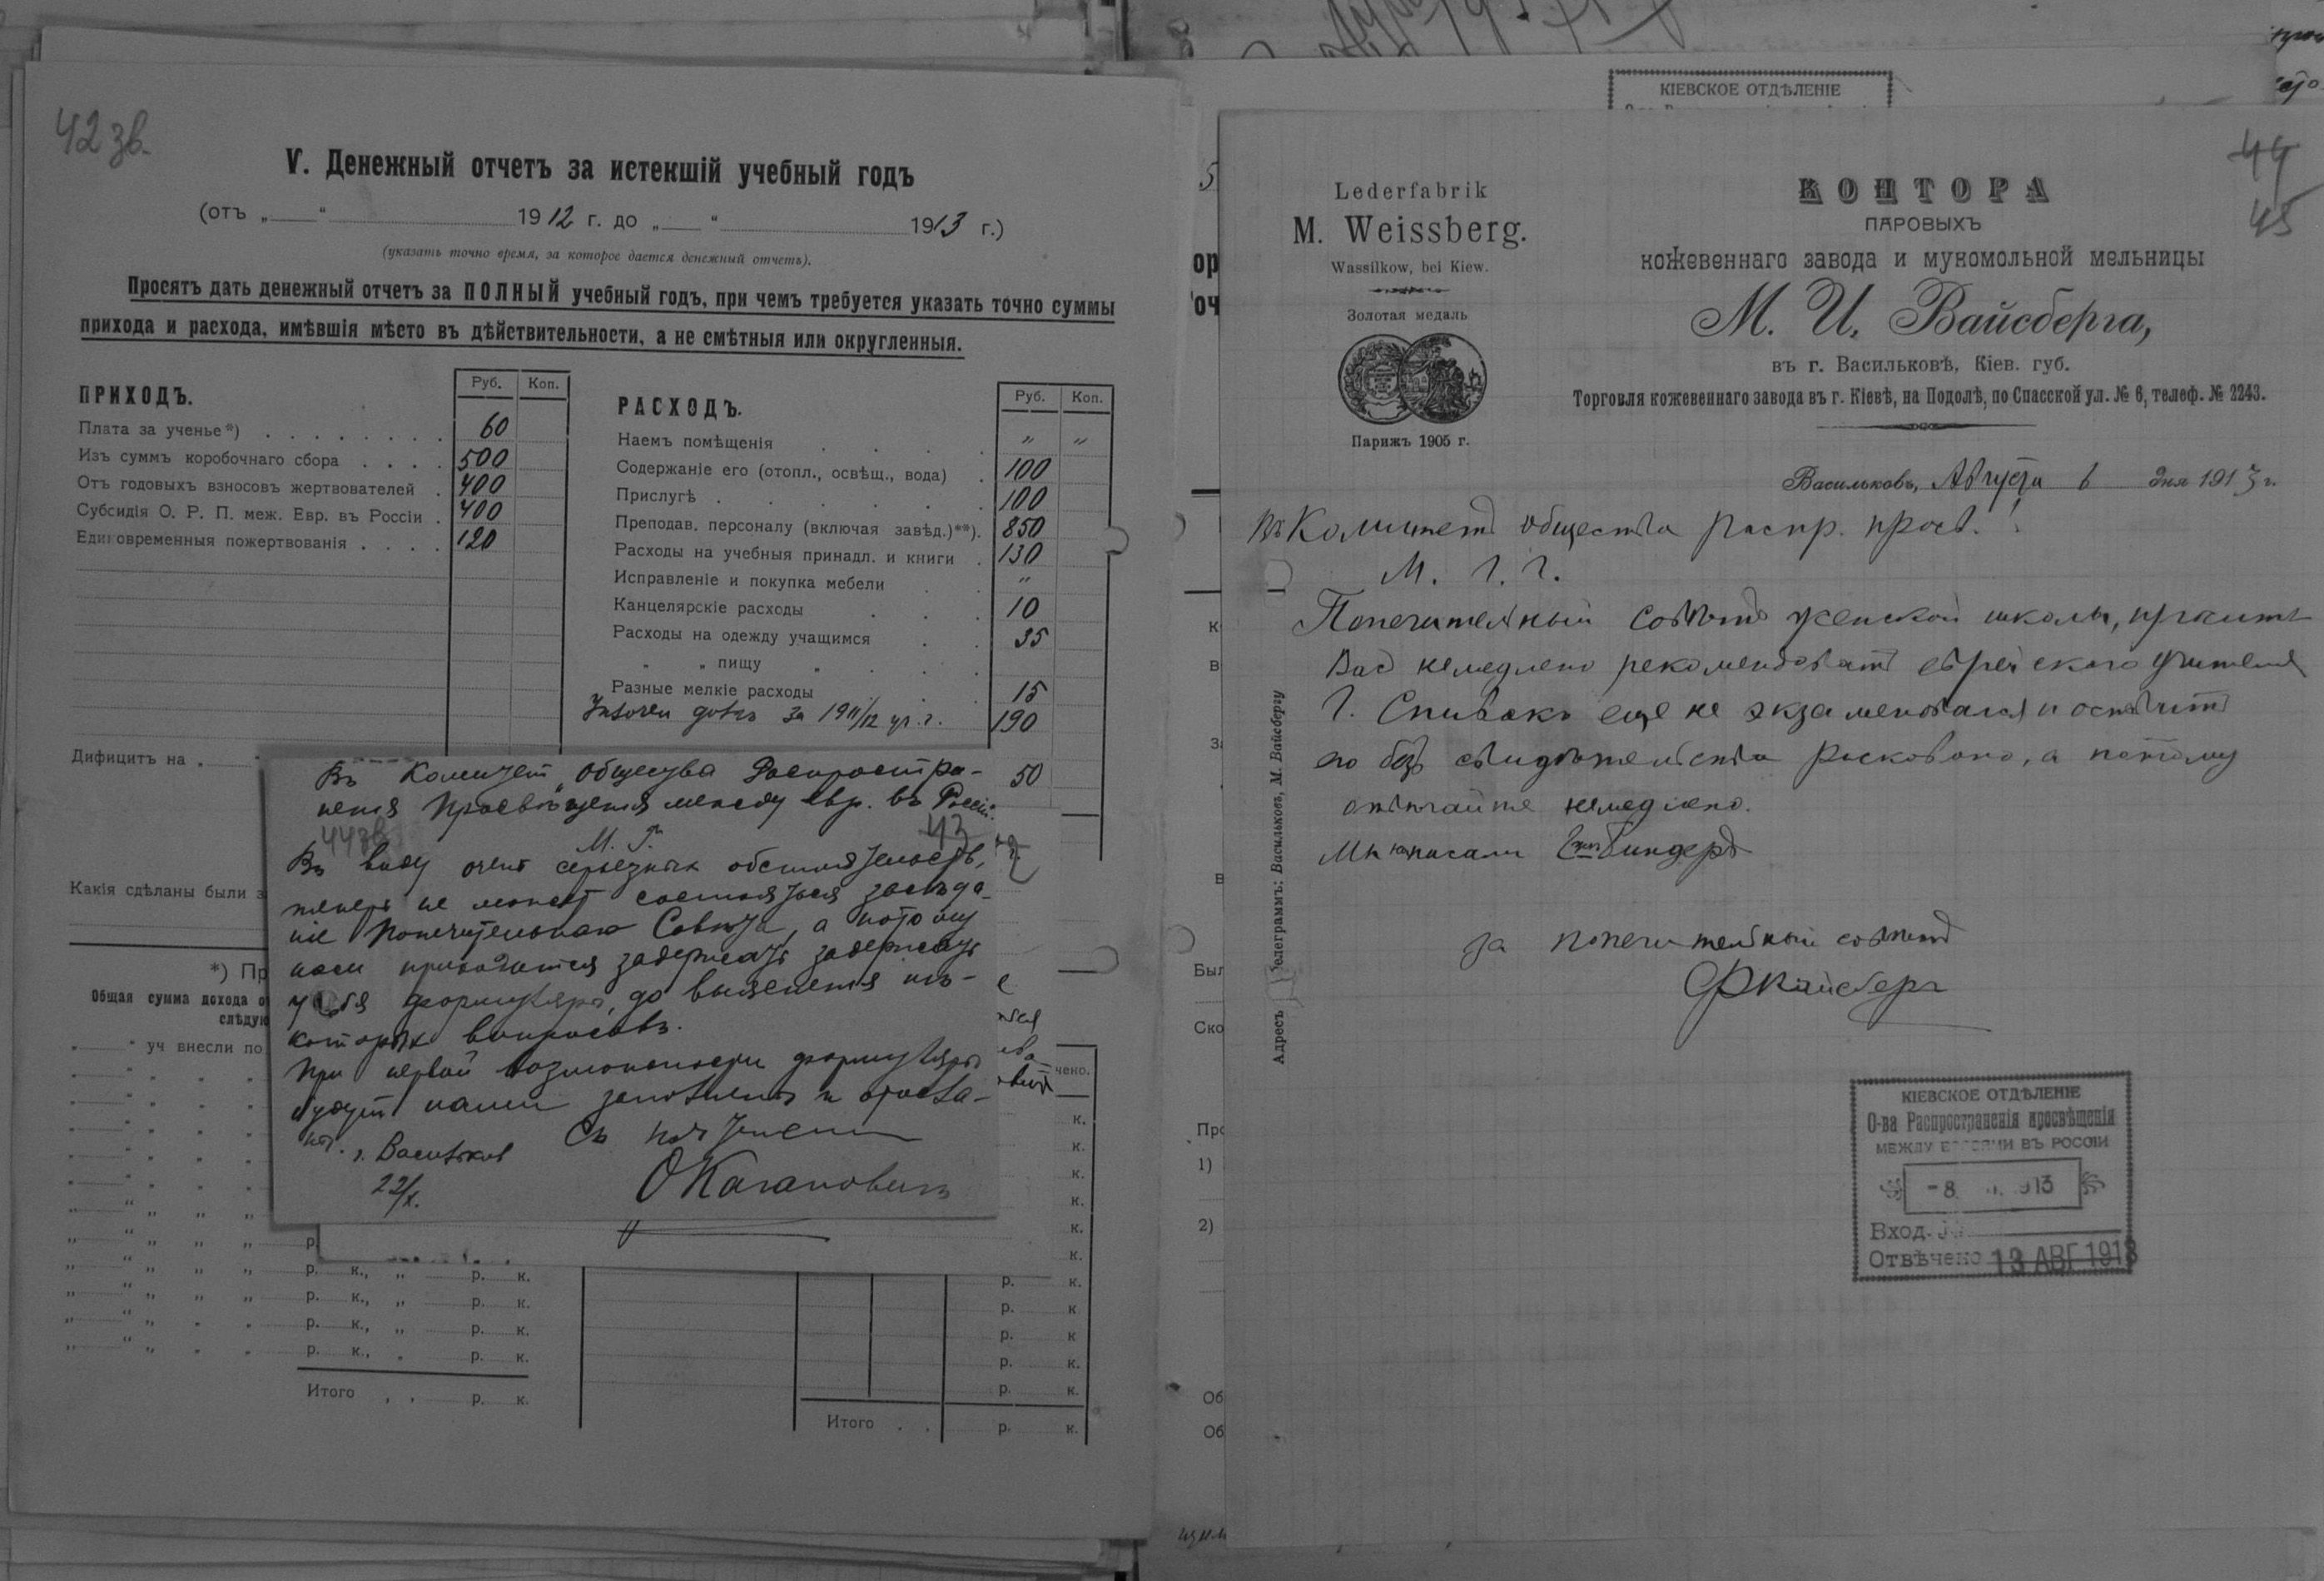 42 зв.
V. Денежный отчетъ за истекшій учебный годъ
(отъ „ “ 1912 г. до „ “ 1913 г.)
(указать точно время, за которое дается денежный отчетъ).
Просятъ дать денежный отчетъ за ПОЛНЫЙ учебный годъ, при чемъ требуется указать точно суммы
прихода и расхода, имѣвшія мѣсто въ дѣйствительности, а не смѣтныя или округленныя.
ПРИХОДЪ. Руб. Коп.
Плата за ученье*) 60
Изъ суммъ коробочнаго сбора 500
Отъ годовыхъ взносовъ жертвователей 400
Субсидія О. Р. П. меж. Евр. въ Россіи 400
Единовременныя пожертвованія 120
Дифицитъ на
РАСХОДЪ. Руб. Коп.
Наемъ помѣщенія „ „
Содержаніе его (отопл., освѣщ., вода) 100
Прислугѣ 100
Преподав. персоналу (включая завѣд.)**) 850
Расходы на учебныя принадл. и книги 130
Исправленіе и покупка мебели „
Канцелярскіе расходы 10
Расходы на одежду учащимся 35
„ „ пищу „
Разные мелкіе расходы 15
за 1911/12 уч. г. 190
50
Какія сдѣланы были з
*) Пр
Общая сумма дохода о
слѣдую
„ “ уч внесли по
чено.
Въ Комитет Общества Распростра-
ненія Просвѣщенія между евр. въ Россіи.
44 зв. 43
М. Г.
Въ виду очень серьезных обстоятельств,
теперь не может состояться засѣда-
ніе Попечительнаго Совѣта, а потому
нам приходится задержать задержать
у себя формуляры, до выясненія нѣ-
которых вопросовъ.
При первой возможности формуляры
будут нами заполнены и отосла-
ны. г. Васильков Съ почтеніем
22/X. ОКагановичъ
р. к., „ р. к.
р. к., „ р. к.
р. к., „ р. к.
р. к., „ р. к.
Итого р. к.
р. к.
р. к
р. к
р. к.
р. к.
Итого р. к.
КІЕВСКОЕ ОТДѢЛЕНІЕ
44
45
Lederfabrik
M. Weissberg.
Wassilkow, bei Kiew.
Золотая медаль
Парижъ 1905 г.
КОНТОРА
ПАРОВЫХЪ
кожевеннаго завода и мукомольной мельницы
М. И. Вайсберга,
въ г. Васильковѣ, Кіев. губ.
Торговля кожевеннаго завода въ г. Кіевѣ, на Подолѣ, по Спасской ул. № 6, телеф. № 2243.
Васильковъ, Августа 6 дня 1913 г.
Въ Комитетъ общества распр. просв.!
М. Г. Г.
Попечительный совѣтъ женской школы, проситъ
Вас немедлено рекомендовать еврейского учителя
Г. Спивакъ еще не экзаменовался и оставить
его безъ свидѣтельства рисковано, а потому
отвѣчайте немедлено.
Мы написали Биндеръ
За попечительный совѣтъ
ФВайсберг
Адресъ телеграммъ: Васильковъ, М. Вайсбергу
КІЕВСКОЕ ОТДѢЛЕНІЕ
О-ва Распространенія просвѣщенія
МЕЖДУ ЕВРЕЯМИ ВЪ РОССІИ
-8 1913
Вход. №
Отвѣчено 13 АВГ 1913